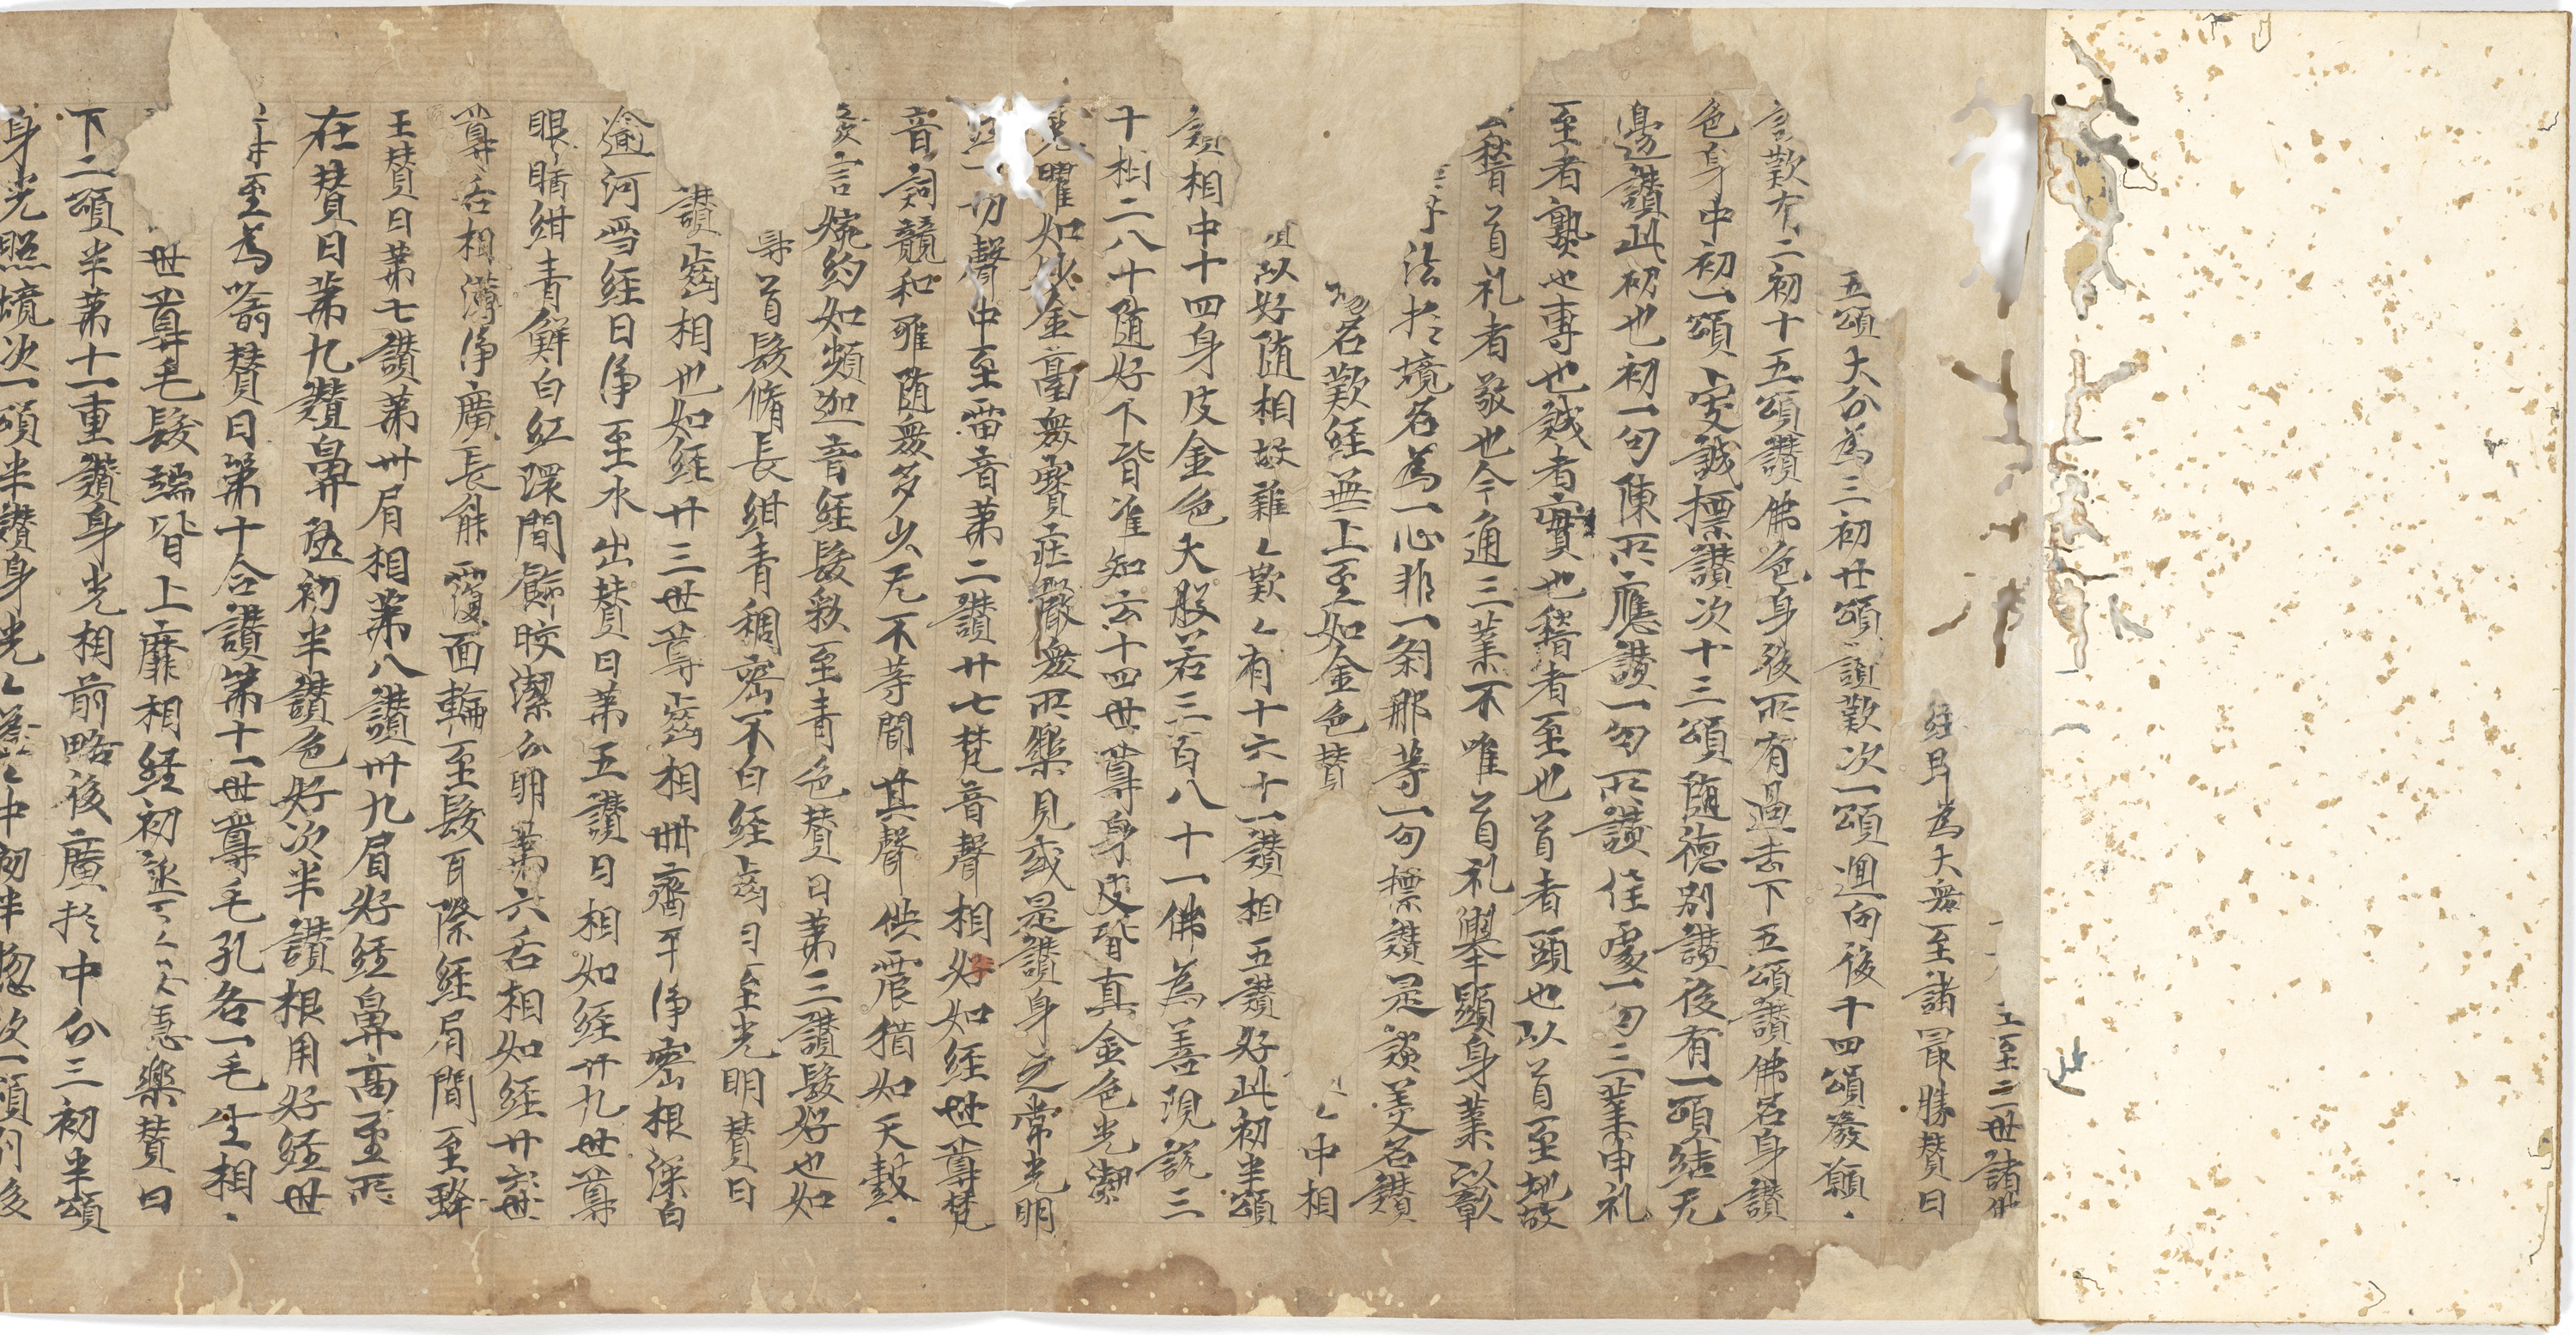 王至三世諸佛
經即為大衆至諸冣勝賛曰
五頌大分為三初廿頌讃歎次一頌迴向後十四頌發願
言歎有二初十五頌讃佛色身後所有過去下五頌讃佛名身讃
色身中初一頌安誠摽讃次十三頌随德別讃後有一頌結无
邊讃此初也初一句陳所應讃一句所讃住處一句三業申礼
至者熟也專也誠者實也稽者至也首者頭也以首至地故
稽首礼者敬也今通三業不唯首礼舉顯身業以彰
法於境名為一心非一剎那等一句摽讃是談美名讃
名歎經無上至如金色賛
中相
以好随相故難歎有十六十一讃相五讃好此初半頌
類相中十四身皮金色大般若三百八十一佛為善現説三
十相二八十随好下皆准知云十四世尊身皮皆真金色光潔
晃曜如妙金臺衆寶莊嚴衆所樂見或是讃身之常光明
一切聲中至雷音第二讃廿七梵音聲相好如經世尊梵
音詞韻和雅随衆多少无不等聞其聲洪震猶如天鼓
發言婉約如頻迦音經髮彩至青色賛曰第三讃髮好也如
首髮脩長紺青稠密不白經齒白至光明賛曰
讃齒相也如經廿三世尊齒相卌齊平淨密根深白
逾珂雪經目淨至水出賛曰第五讃目相如經廿九世尊
眼睛紺青鮮白紅環間飾皎潔分明第六舌相如經廿六世
尊舌相薄淨廣長能覆面輪至髮耳際經眉間至蜂
王賛曰第七讃第卅眉相第八讃卅九眉好經鼻高至所
在賛曰第九讃鼻恆初半讃色好次半讃根用好經世
尊至為㝡賛曰第十合讃第十一世尊毛孔各一毛生相
世尊毛髮端皆上靡相經初誕樂賛曰
下二頌半第十一重讃身光相前略後廣於中分三初半頌
身光照境次一頌半讃身光中初半惣次一頌別後